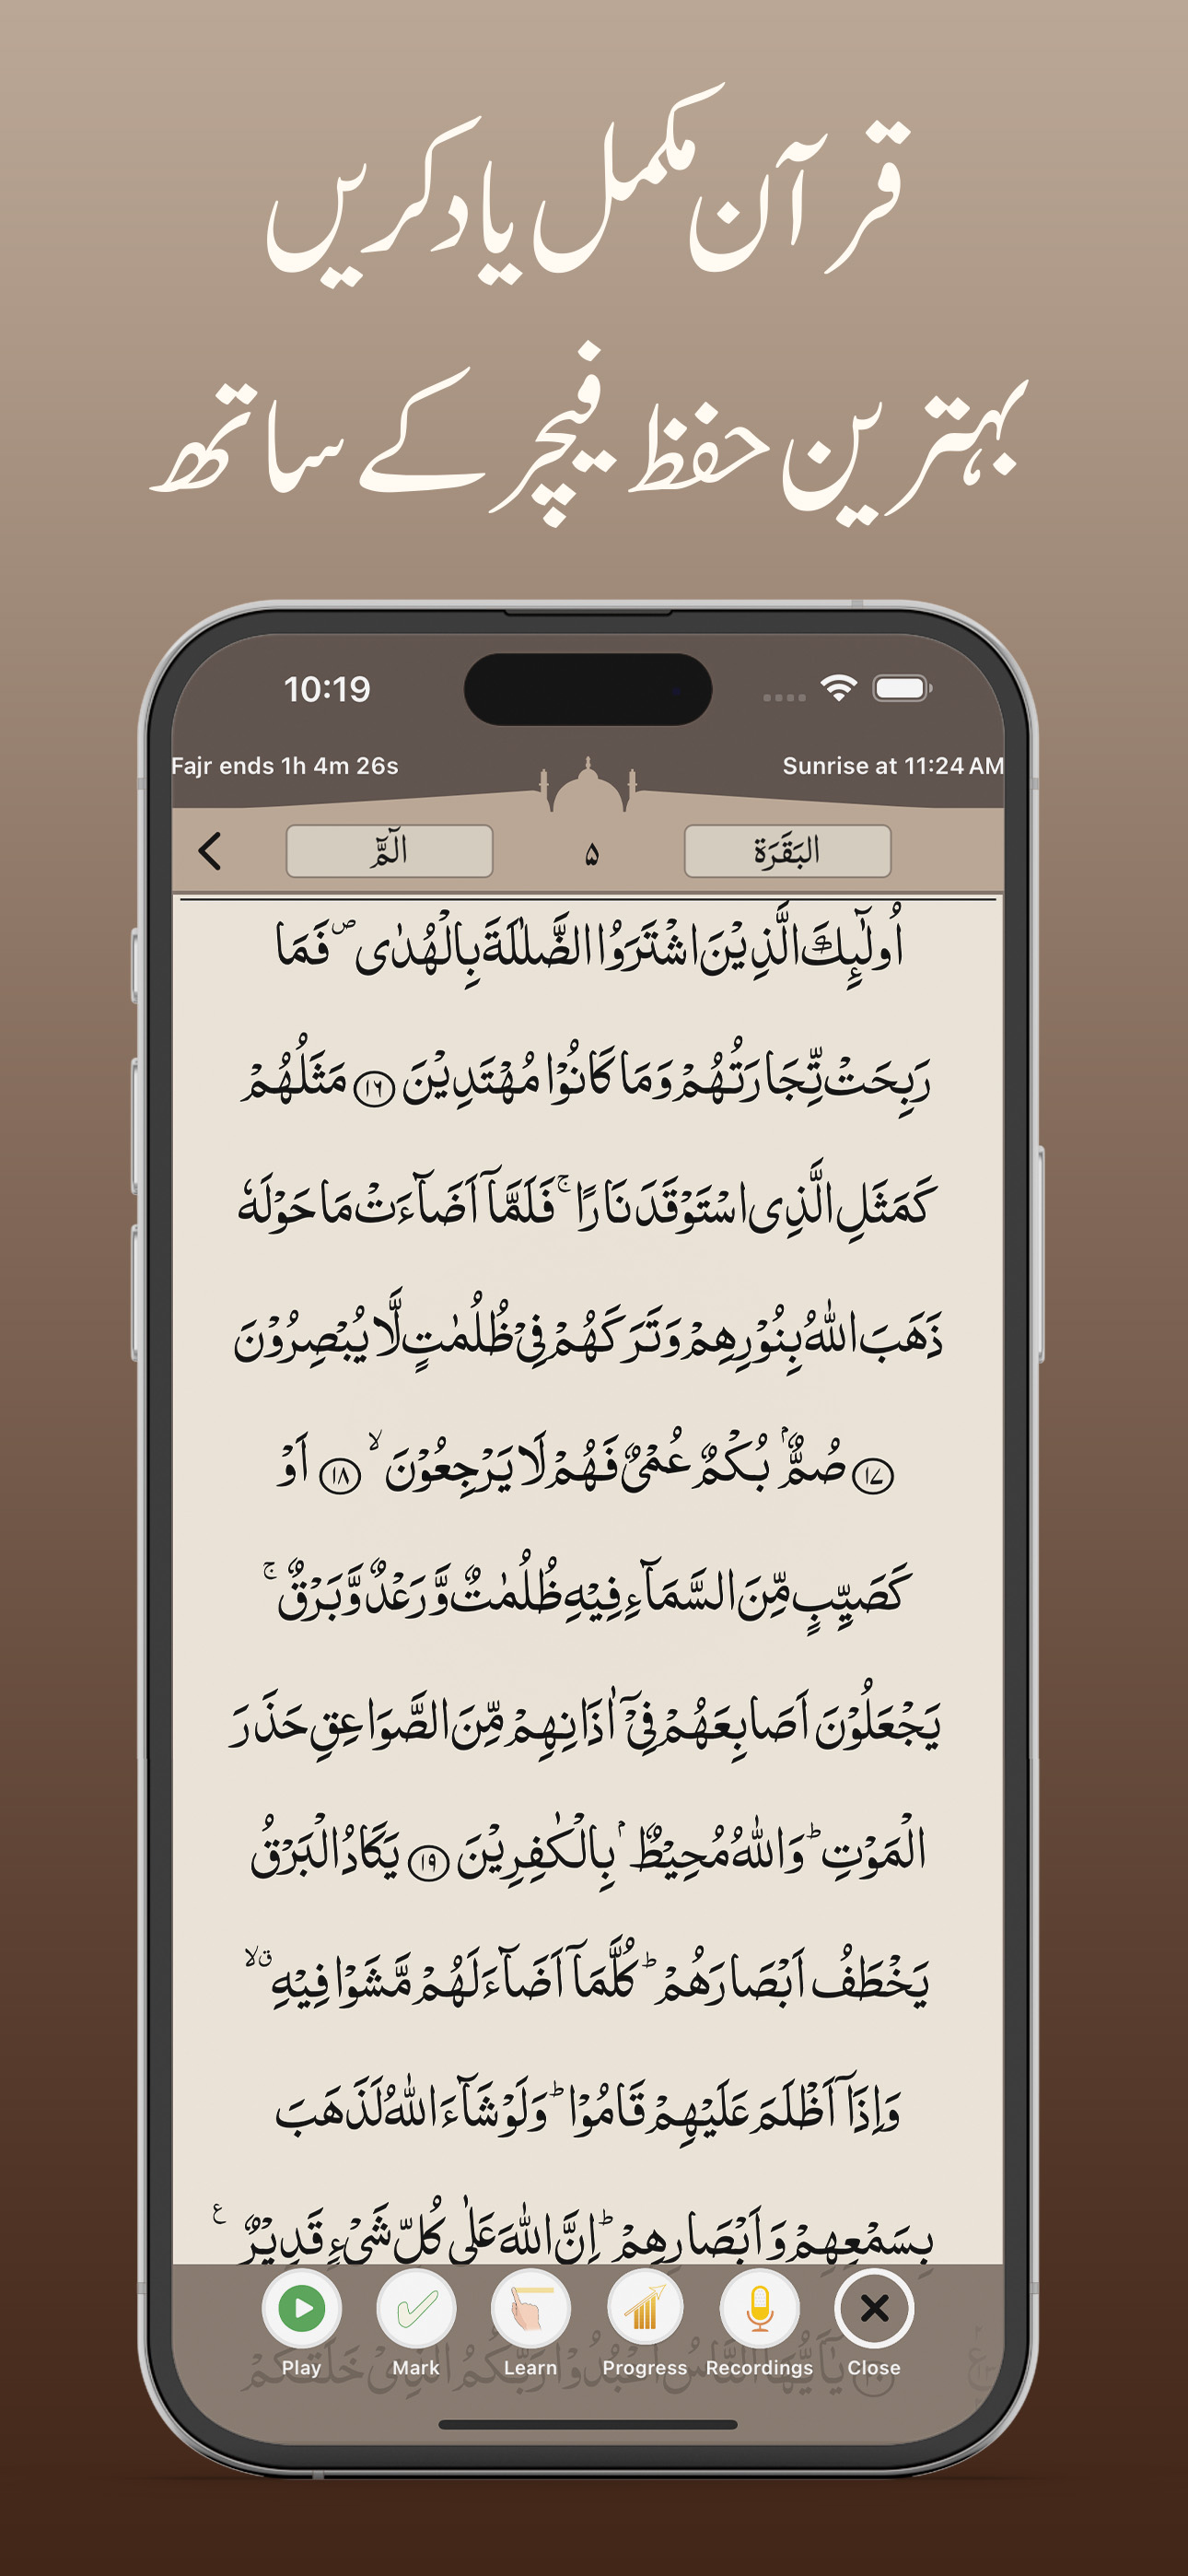 قرآن مکمل یاد کریں
بہترین حفظ فیچر کے ساتھ
10:19
Fajr ends 1h 4m 26s
Sunrise at 11:24 AM
الٓمّٓ
۵
البَقَرَة
اُولٰٓئِكَ الَّذِيْنَ اشْتَرَوُا الضَّلٰلَةَ بِالْهُدٰى ۖ فَمَا
رَبِحَتْ تِّجَارَتُهُمْ وَمَا كَانُوْا مُهْتَدِيْنَ ١٦ مَثَلُهُمْ
كَمَثَلِ الَّذِى اسْتَوْقَدَ نَارًا ۚ فَلَمَّآ اَضَآءَتْ مَا حَوْلَهٗ
ذَهَبَ اللّٰهُ بِنُوْرِهِمْ وَتَرَكَهُمْ فِىْ ظُلُمٰتٍ لَّا يُبْصِرُوْنَ
١٧ صُمٌّۢ بُكْمٌ عُمْىٌ فَهُمْ لَا يَرْجِعُوْنَ ۙ ١٨ اَوْ
كَصَيِّبٍ مِّنَ السَّمَآءِ فِيْهِ ظُلُمٰتٌ وَّرَعْدٌ وَّبَرْقٌ ۚ
يَجْعَلُوْنَ اَصَابِعَهُمْ فِىْٓ اٰذَانِهِمْ مِّنَ الصَّوَاعِقِ حَذَرَ
الْمَوْتِ ؕ وَاللّٰهُ مُحِيْطٌۢ بِالْكٰفِرِيْنَ ١٩ يَكَادُ الْبَرْقُ
يَخْطَفُ اَبْصَارَهُمْ ؕ كُلَّمَآ اَضَآءَ لَهُمْ مَّشَوْا فِيْهِ ۙق
وَاِذَآ اَظْلَمَ عَلَيْهِمْ قَامُوْا ؕ وَلَوْ شَآءَ اللّٰهُ لَذَهَبَ
بِسَمْعِهِمْ وَاَبْصَارِهِمْ ؕ اِنَّ اللّٰهَ عَلٰى كُلِّ شَىْءٍ قَدِيْرٌ ع
يٰٓاَيُّهَا النَّاسُ اعْبُدُوْا رَبَّكُمُ الَّذِىْ خَلَقَكُمْ
Play Mark Learn Progress Recordings Close